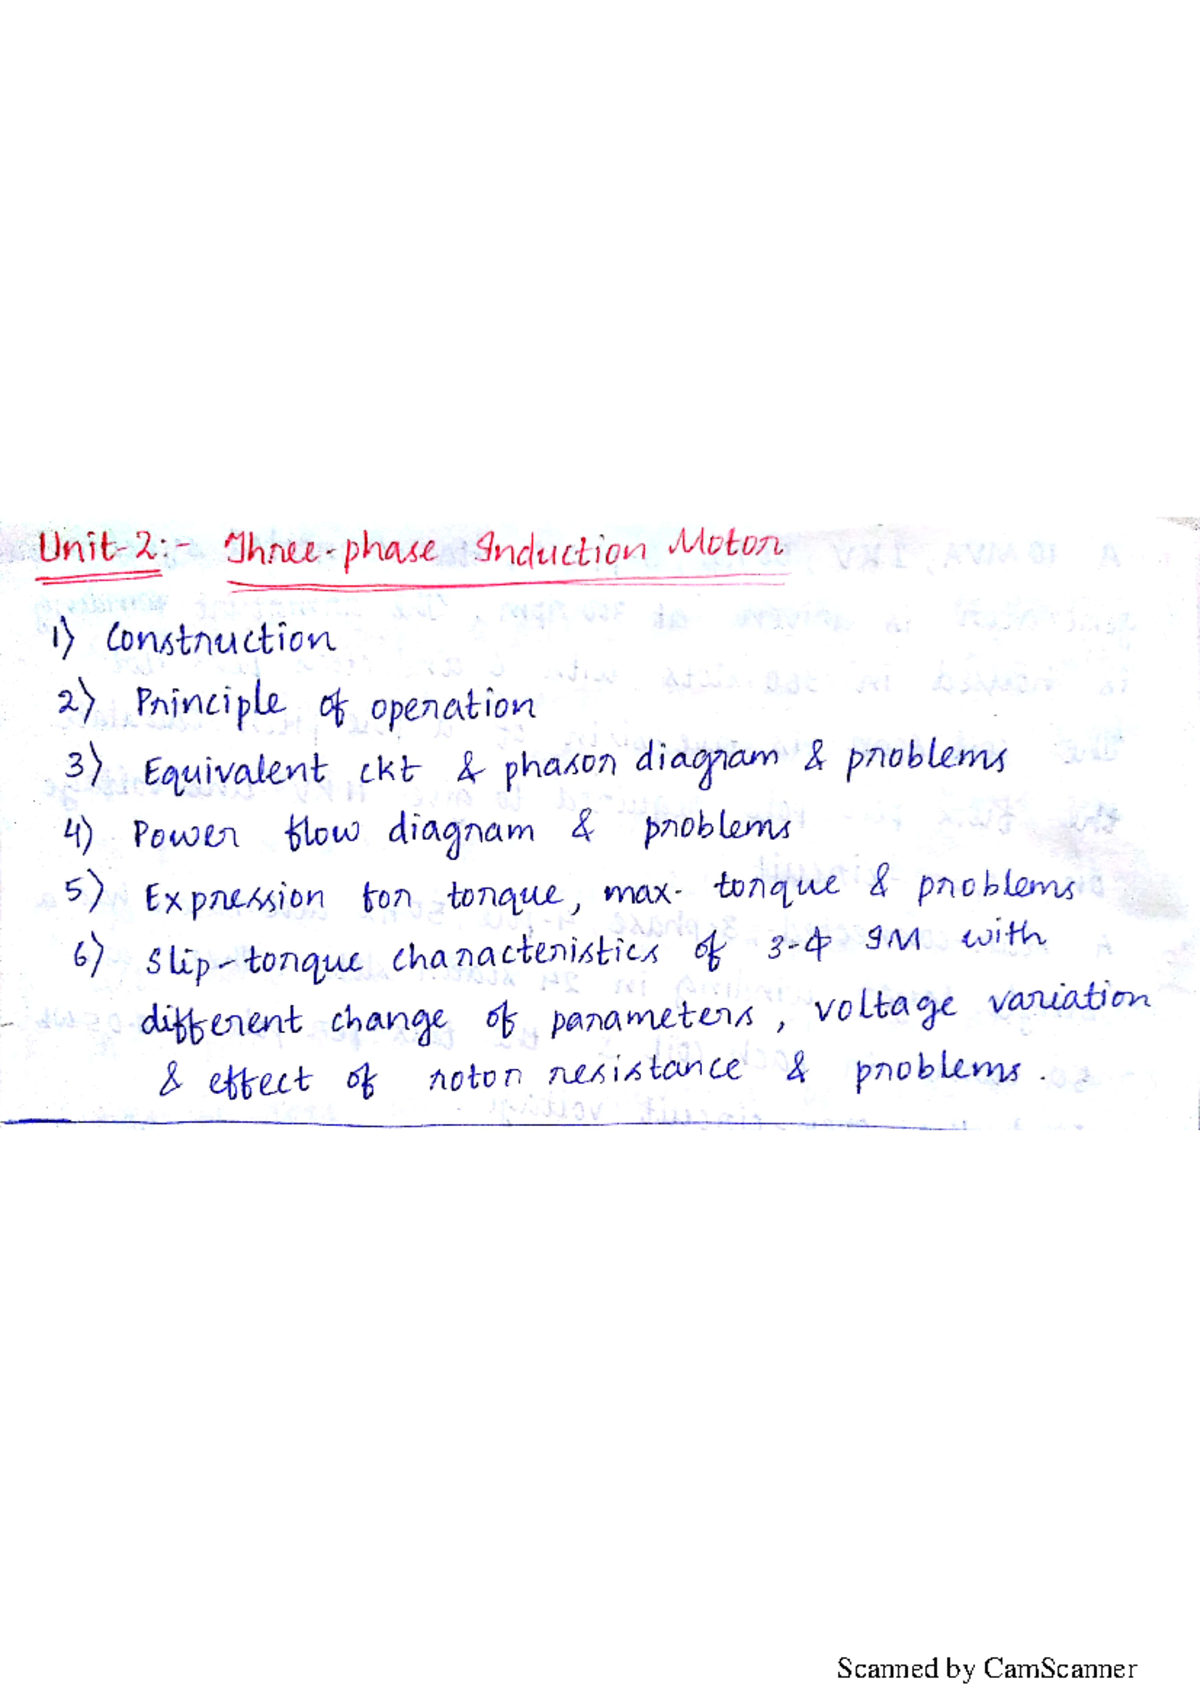 Unit-2:- Three-phase Induction Motor
1) Construction
2) Principle of operation
3) Equivalent ckt & phasor diagram & problems
4) Power flow diagram & problems
5) Expression for torque, max. torque & problems
6) Slip-torque characteristics of 3-ф IM with
different change of parameters, voltage variation
& effect of rotor resistance & problems.
Scanned by CamScanner